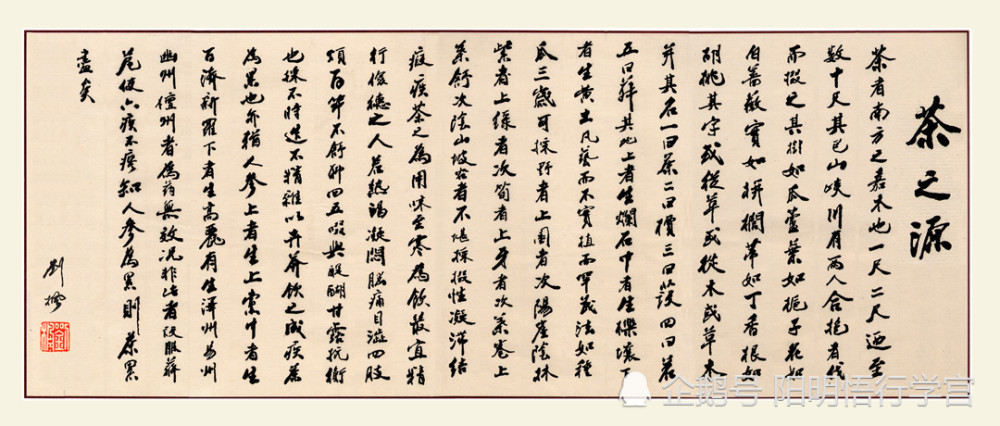 茶之源
茶者南方之嘉木也一尺二尺迺至
数十尺其巴山峡川有两人合抱者伐
而掇之其樹如瓜蘆葉如梔子花如
白薔薇實如栟櫚蒂如丁香根如
胡桃其字或從草或從木或草木
并其名一曰茶二曰檟三曰蔎四曰茗
五曰荈其地上者生爛石中者生礫壤下
者生黄土凡藝而不實植而罕茂法如種
瓜三歲可採野者上園者次陽崖陰林
紫者上緑者次筍者上牙者次葉卷上
葉舒次陰山坡谷者不堪採掇性凝滯結
瘕疾茶之為用味至寒為飲最宜精
行儉德之人若熱渴凝悶腦痛目澁四肢
煩百節不舒聊四五啜與醍醐甘露抗衡
也採不時造不精雜以卉莽飲之成疾茶
為累也亦猶人參上者生上党中者生
百濟新羅下者生高麗有生澤州易州
幽州檀州者為药無效况非此者設服薺
苨使六疾不瘳知人參為累則茶累
盡矣
劉
企鹅号 阳明悟行学官